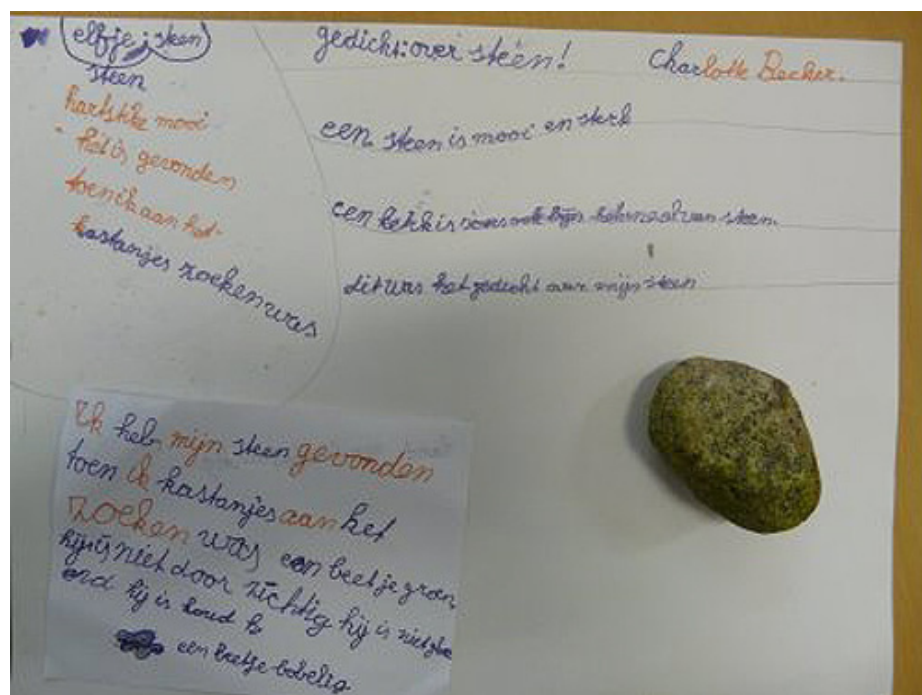 elfje: steen
steen
hartstikke mooi
het is gevonden
toen ik aan het
kastanjes zoeken was
gedicht: over steen!
Charlotte Becker.
een steen is mooi en sterk
een is van steen.
dit was het gedicht over mijn steen
Ik heb mijn steen gevonden
toen ik kastanjes aan het
zoeken was een beetje groen
hij is niet door zichtig hij is niet
end hij is koud
een beetje bobelig